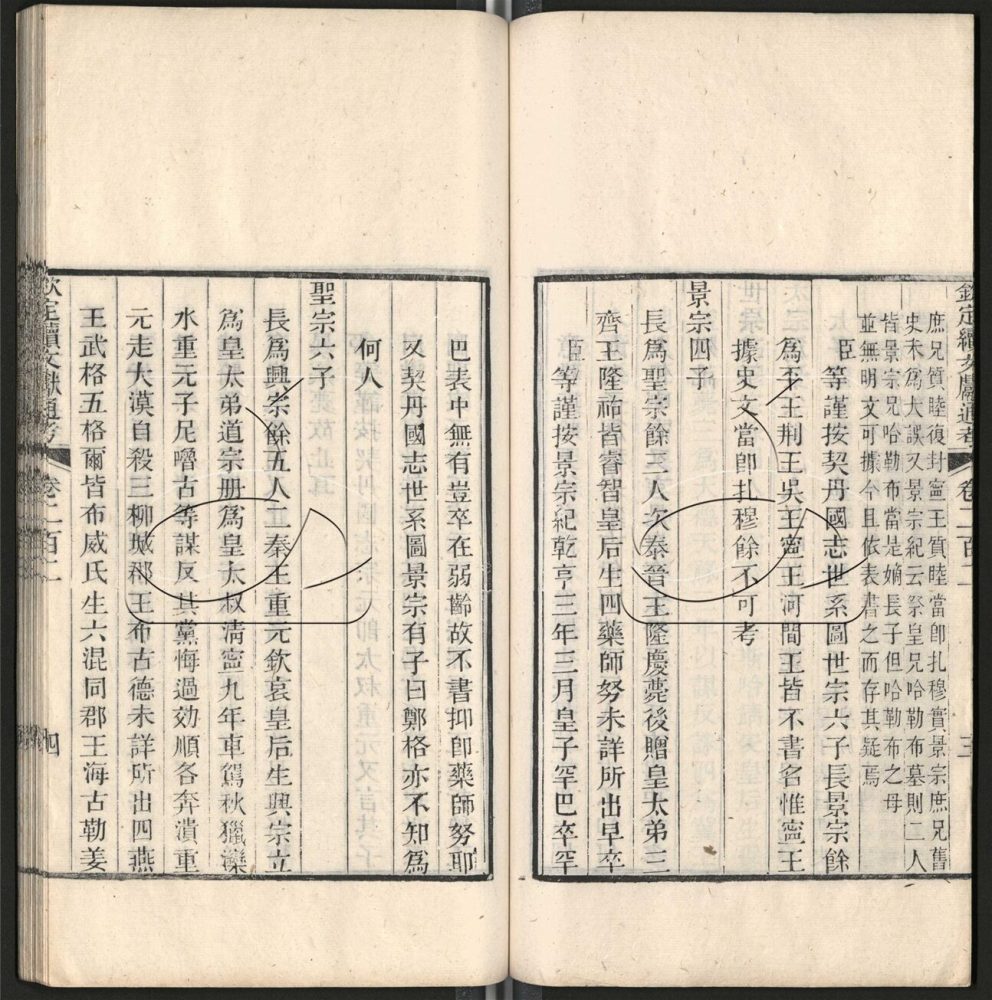 欽定續文獻通考 卷二百二 三
庶兄質睦復封寧王質睦當卽扎穆實景宗庶兄舊
史未爲大誤又景宗紀云祭皇兄哈勒布墓則二人
皆景宗兄哈勒布當是嫡長子但哈勒布之母
並無明文可據今且依表書之而存其疑焉
臣等謹按契丹國志世系圖世宗六子長景宗餘
爲平王荆王吳王寧王河間王皆不書名惟寧王
據史文當卽扎穆餘不可考
景宗四子
長爲聖宗餘三人次秦晉王隆慶薨後贈皇太弟三
齊王隆祐皆睿智皇后生四藥師努未詳所出早卒
臣等謹按景宗紀乾亨三年三月皇子罕巴卒罕
巴表中無有豈卒在弱齡故不書抑卽藥師努耶
又契丹國志世系圖景宗有子曰鄭格亦不知爲
何人
聖宗六子
長爲興宗餘五人二秦王重元欽哀皇后生興宗立
爲皇太弟道宗册爲皇太叔淸寧九年車駕秋獵灤
水重元子尼嚕古等謀反其黨悔過效順各奔潰重
元走大漠自殺三柳城郡王布古德未詳所出四燕
王武格五格爾皆布威氏生六混同郡王海古勒姜
欽定續文獻通考 卷二百二 四